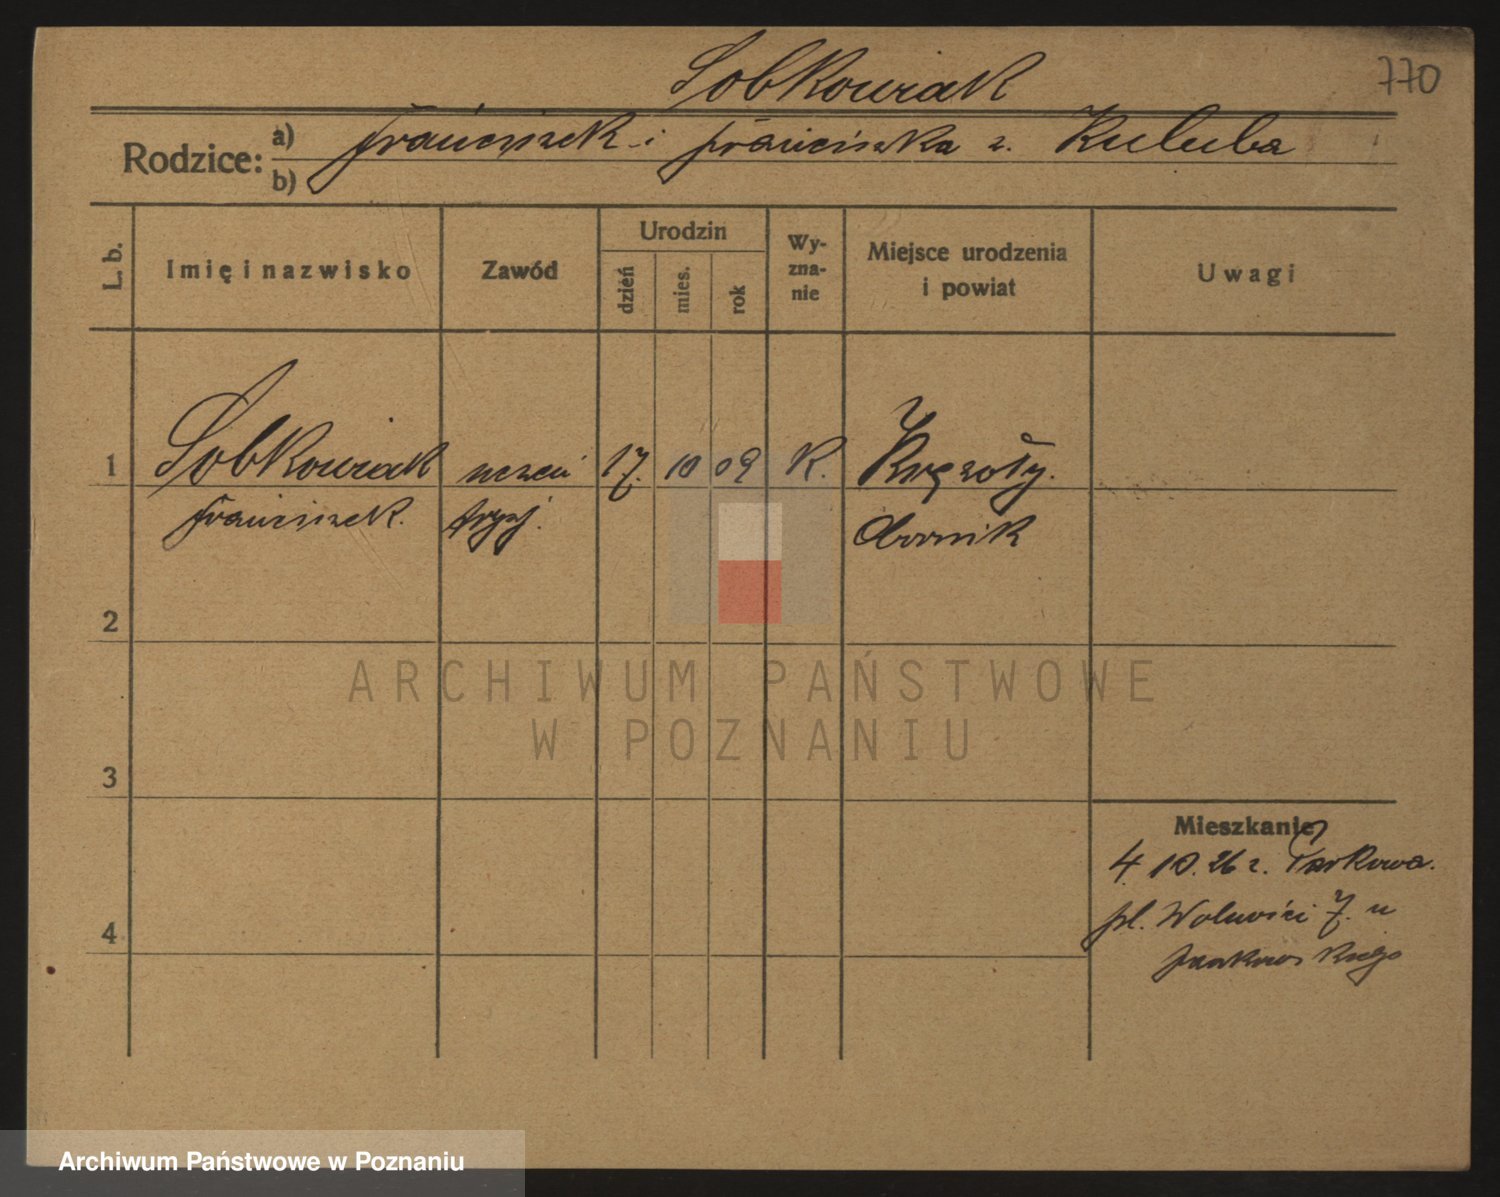 Sobkowiak
770
Rodzice:
a) Franciszek i Franciszka z. Kuluba
b)
L. b.
Imię i nazwisko
Zawód
Urodzin
dzień
mies.
rok
Wy-
zna-
nie
Miejsce urodzenia
i powiat
Uwagi
1 Sobkowiak uczeń 17. 10 09 K.
Franciszek. fryzj. Obornik
2
ARCHIWUM PAŃSTWOWE
W POZNANIU
3
Mieszkanie
4. 10. 26 r.
pl. Wolności 7. u
4
Archiwum Państwowe w Poznaniu